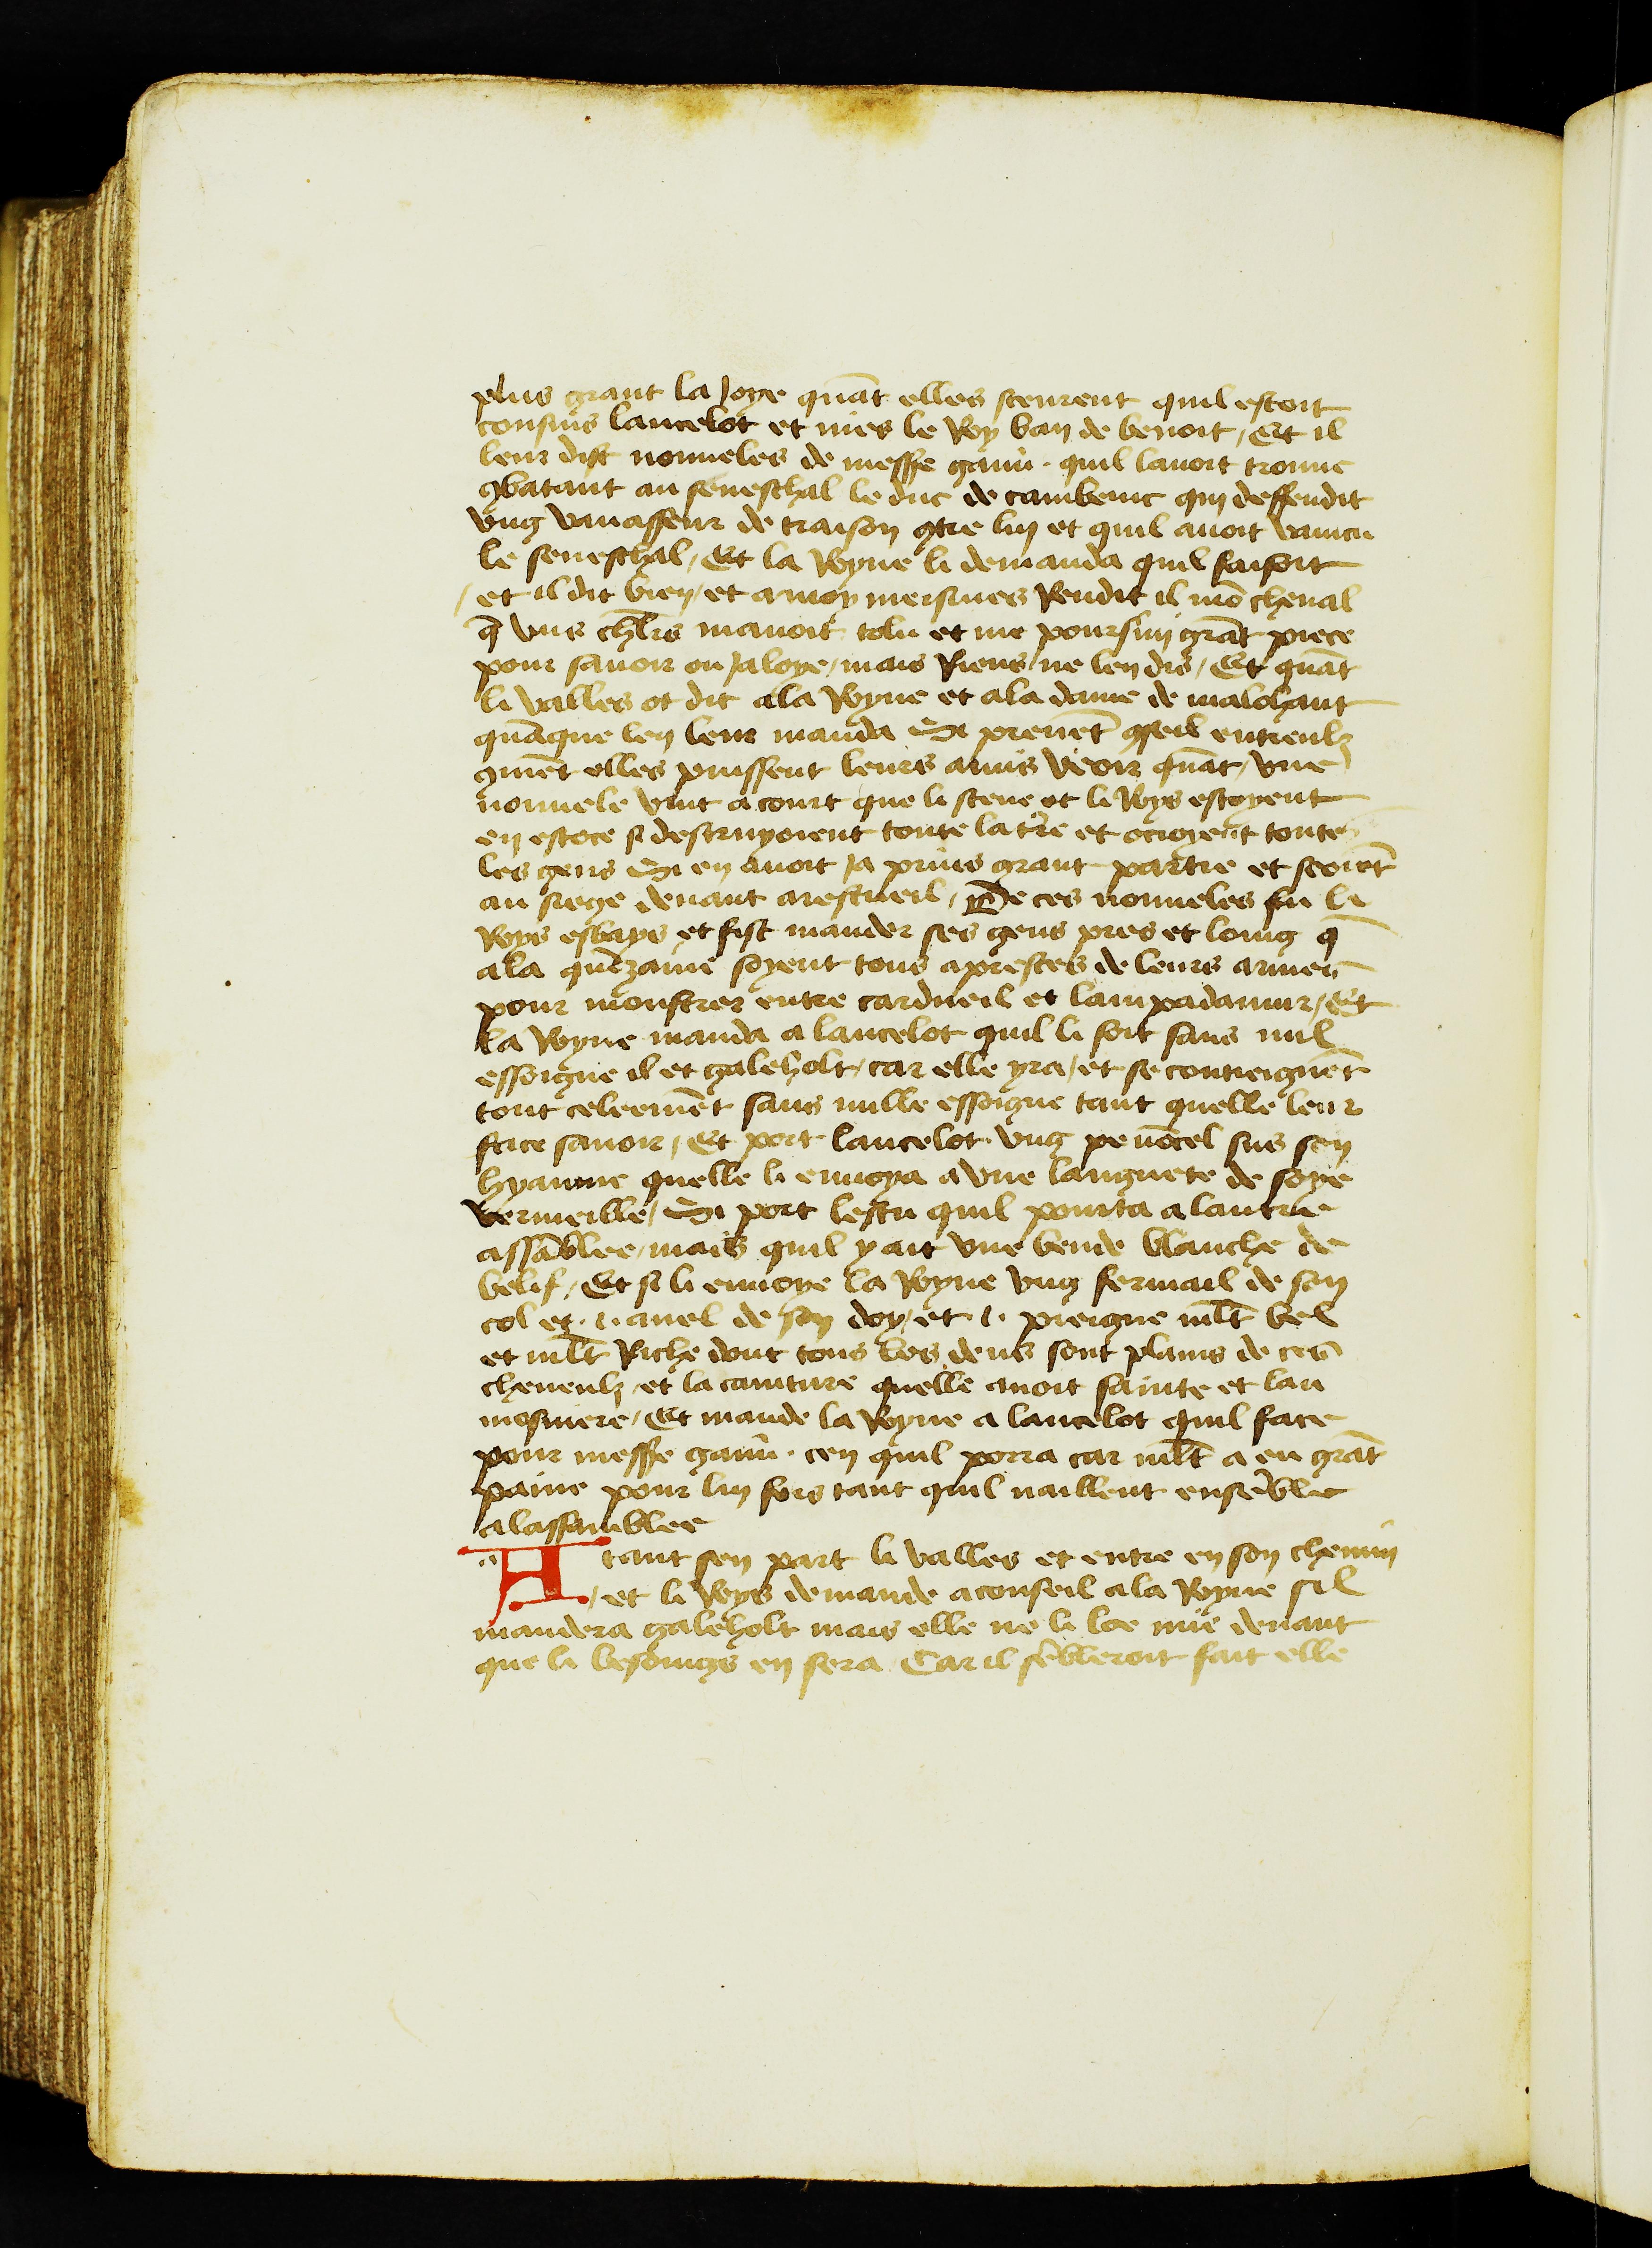 plus grant la Joye quāt elles sceurent quil estoit
cousins lancelot et nies le Roy ban de benoit / Et il
leur dist nouueles de messe gauū · quil lauoit trouue
ꝯbatant au seneschal le duc de cambenic qui deffendit
vng vauasseur de traison ꝯtre luy et quil auoit vaincu
le seneschal / Et la Royne li demanda quil faisoit
/ et il dit bien / et a moy meismes Rendit il mō cheual
q̄ vns chl̄rs mauoit tolu et me poursuy grāt piece
pour sauoir ou Jaloye / mais Riens ne len dis / Et quāt
li valles ot dit ala Royne et ala dame de malohaut
quāque len leur manda Si prenēt ꝯseil entreulz
ꝯmēt elles puissent leurs amis veoir quāt / vne
nouuele vint a court que li scene et li Roys estoyent
en estoce si destruyoient toute la t̄re et ocioyent toute
les gens Si en auoit Ja prins grant partie et seoiēt
au siege deuant arestueil / De ces nouueles fu li
Roys esbays et fist mander ses gens pres et loing q̄
ala quīzaine soyent tous aprestes de leurs armes
pour monstrer entre cardueil et lampadamur / Et
la Royne manda a lancelot quil li soit sans nul
essoigne il et galeholt / car elle yra / et se contieignēt
tout celeemēt sans nulle essoigne tant quelle leur
face sauoir / Et port lancelot vng penōcel sus son
hyaume quelle li enuoya a vne languete de soye
vermeille / Si port lescu quil pourta a lautre
assāblee / mais quil y ait vne bende blanche de
belif / Et si li enuoye la Royne vng fermail de son
col et · i · anel de son doy / et · i · pieigne ml̄t bel
et ml̄t Riche dont tous les dens sont plains de ces
cheueulz / et la cainture quelle auoit sainte et lau
mosniere / Et mande la Royne a lancelot quil face
pour messe gauū · cen quil porra car ml̄t a eu grāt
paine pour luy fors tant quil naillent ensēble
a lassamblee
Atant sen part li valles et entre en son chemin
/ et li Roys demande aconseil ala Royne sil
mandera galeholt mais elle ne li loe mie deuant
que li besoings en sera Car il sēbleroit fait elle